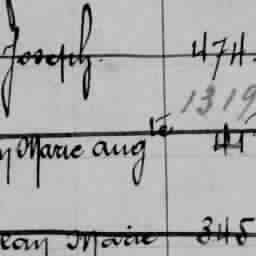 Joseph. 474.
1319
Marie aug te 44
Jean Marie 345